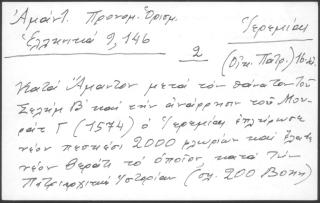 Ἀμάντ. Προνομ. Ὁρισμ. Ἱερεμίας
Ἑλληνικά 9, 146 2 (Οἰκ. Πατρ.)
Κατά Ἄμαντον μετά τόν θάνατον τοῦ
Σελήμ Β΄ καί τήν ἀνάρρησιν τοῦ Μου-
ράτ Γ΄ (1574) ὁ Ἱερεμίας ἐπλήρωσε
νέον πεσκέσι 2000 φλωρίων καί ἔλαβε
νέον βεράτι τό ὁποῖον, κατά τήν
Πατριαρχικήν Ἱστορίαν (σελ. 200 Βόνν.)